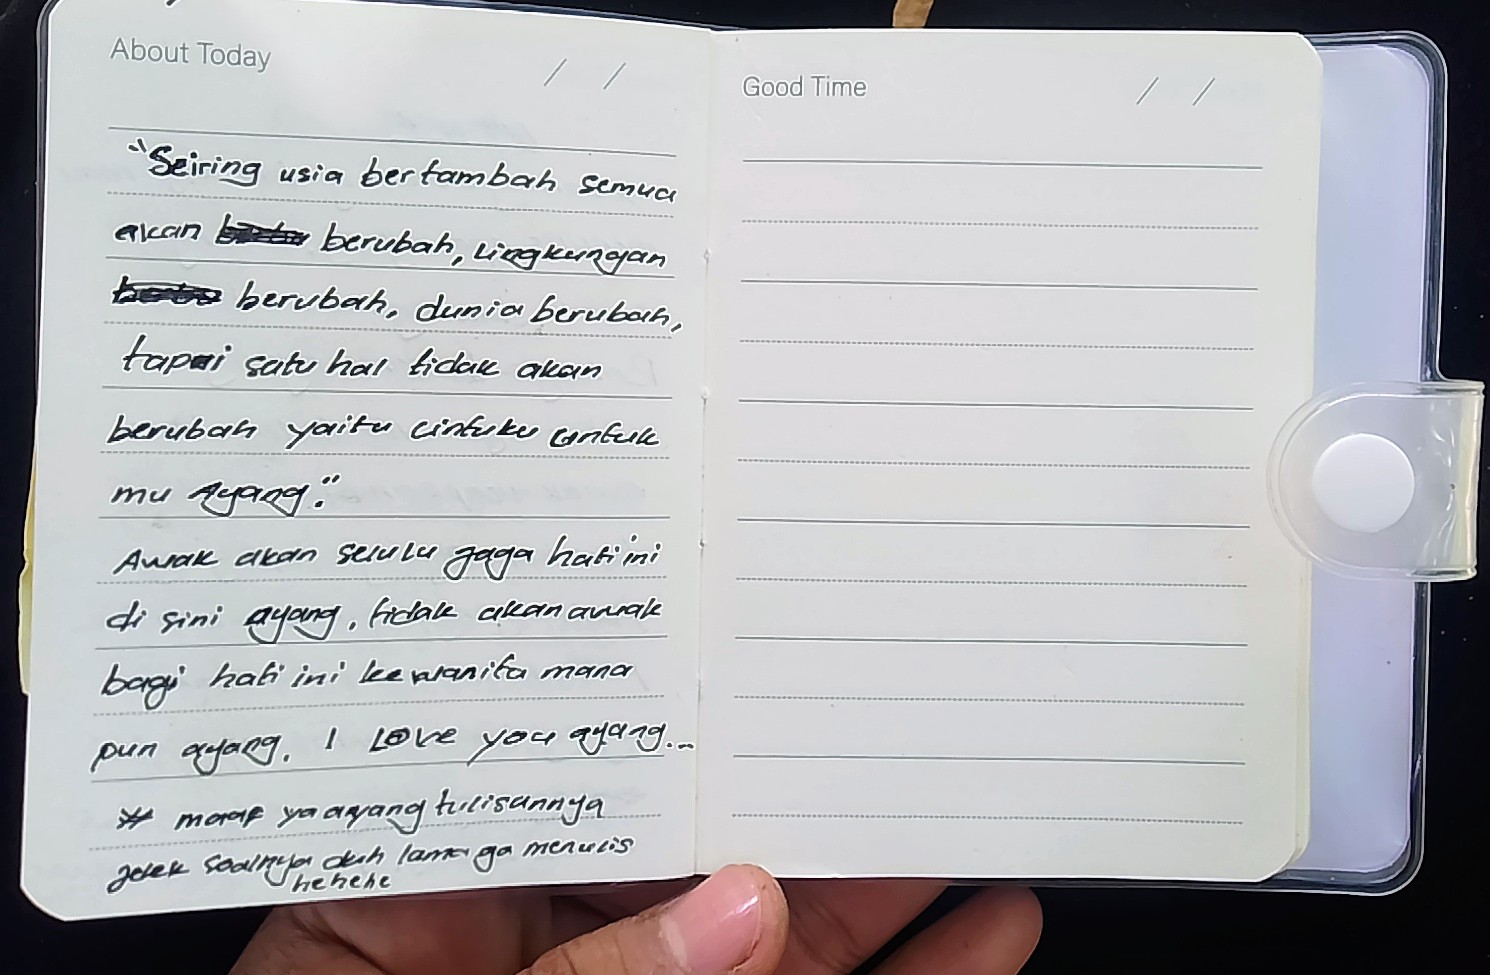 About Today / /
"Seiring usia bertambah semua
akan berubah, lingkungan
berubah, dunia berubah,
tapi satu hal tidak akan
berubah yaitu cintuku untuk
mu Ayang."
Awak akan selulu jaga hati ini
di sini ayang, tidak akan awak
bagi hati ini kewanita mana
pun ayang. I LOVE you ayang...
* maaf ya ayang tulisannya
jelek soalnya duh lama ga menulis
hehehe
Good Time / /